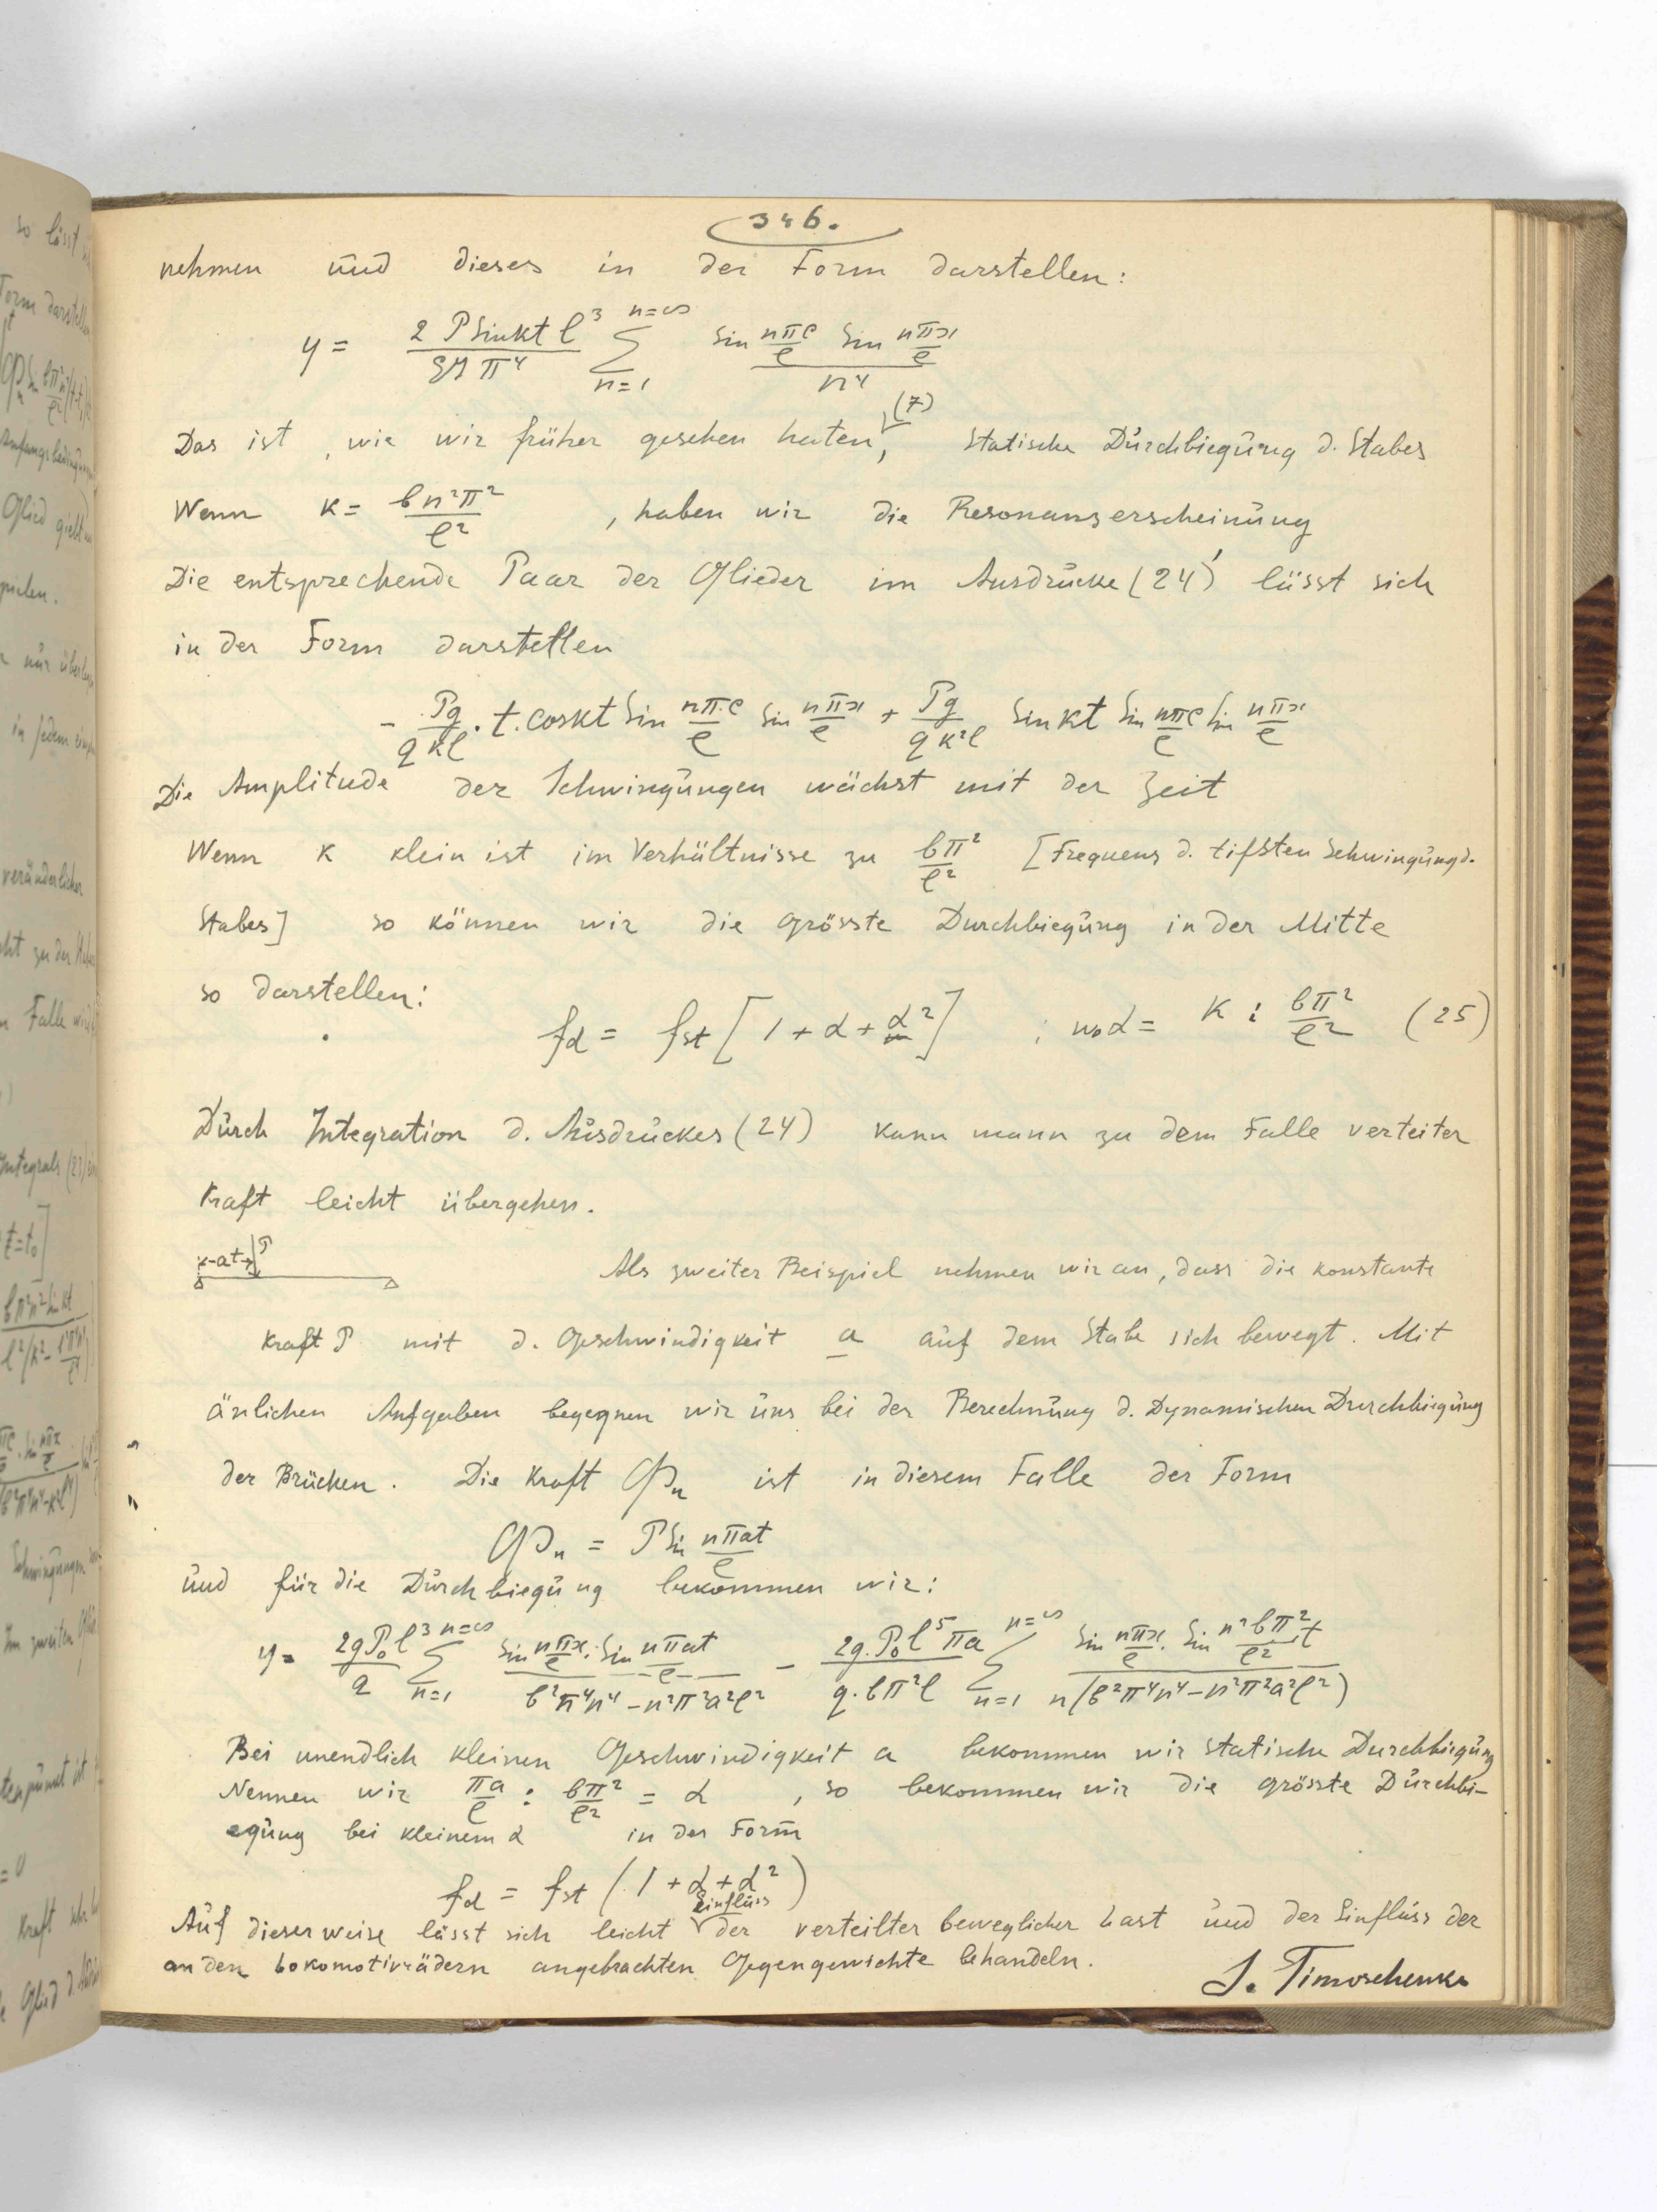 346.
nehmen und dieses in der Form darstellen:
y = 2 P Sin kt l³ / EJ π⁴ ∑ n=1 n=∞ Sin nπc/l Sin nπx/l / n⁴
Das ist, wie wir früher gesehen haten (7), Statische Durchbiegung d. Stabes
Wenn K = b n²π² / l² , haben wir die Resonanzerscheinung
Die entsprechende Paar der Glieder im Ausdrucke (24)' lässt sich
in der Form darstellen
- Pg / q k l . t. cos kt Sin nπc/l Sin nπx/l + Pg / q k² l Sin kt Sin nπc/l Sin nπx/l
Die Amplitude der Schwingungen wächst mit der Zeit
Wenn K klein ist im Verhältnisse zu bπ²/l² [Frequenz d. tifsten Schwingung d.
Stabes] so können wir die grösste Durchbiegung in der Mitte
so darstellen:
fd = fst [1 + α + α²] ; wo α = K : bπ²/l² (25)
Durch Integration d. Ausdruckes (24) kann mann zu dem Falle verteiter
Kraft leicht übergehen.
x-at→ P
Als zweiter Beispiel nehmen wir an, dass die konstante
Kraft P mit d. Geschwindigkeit a auf dem Stabe sich bewegt. Mit
änlichen Aufgaben begegnen wir uns bei der Berechnung d. Dynamischen Durchbiegung
der Brücken. Die Kraft Φn ist in diesem Falle der Form
Φn = P Sin nπat/l
und für die Durchbiegung bekommen wir:
y = 2gP₀l³/q ∑ n=1 n=∞ Sin nπx/l . Sin nπat/l / b²π⁴n⁴ - n²π²a²l² - 2g.P₀l⁵πa / q.bπ²l ∑ n=1 n=∞ Sin nπx/l . Sin n²bπ²/l² t / n(b²π⁴n⁴ - n²π²a²l²)
Bei unendlich kleinen Geschwindigkeit a bekommen wir statische Durchbiegung
Nennen wir πa/l : bπ²/l² = α , so bekommen wir die grösste Durchbi-
egung bei kleinem α in der Form
fd = fst (1 + α + α²)
einfluss
Auf dieser weise lässt sich leicht der verteilter beweglicher Last und der Einfluss der
an den Lokomotivrädern angebrachten Gegengewichte behandeln.
S. Timoschenko